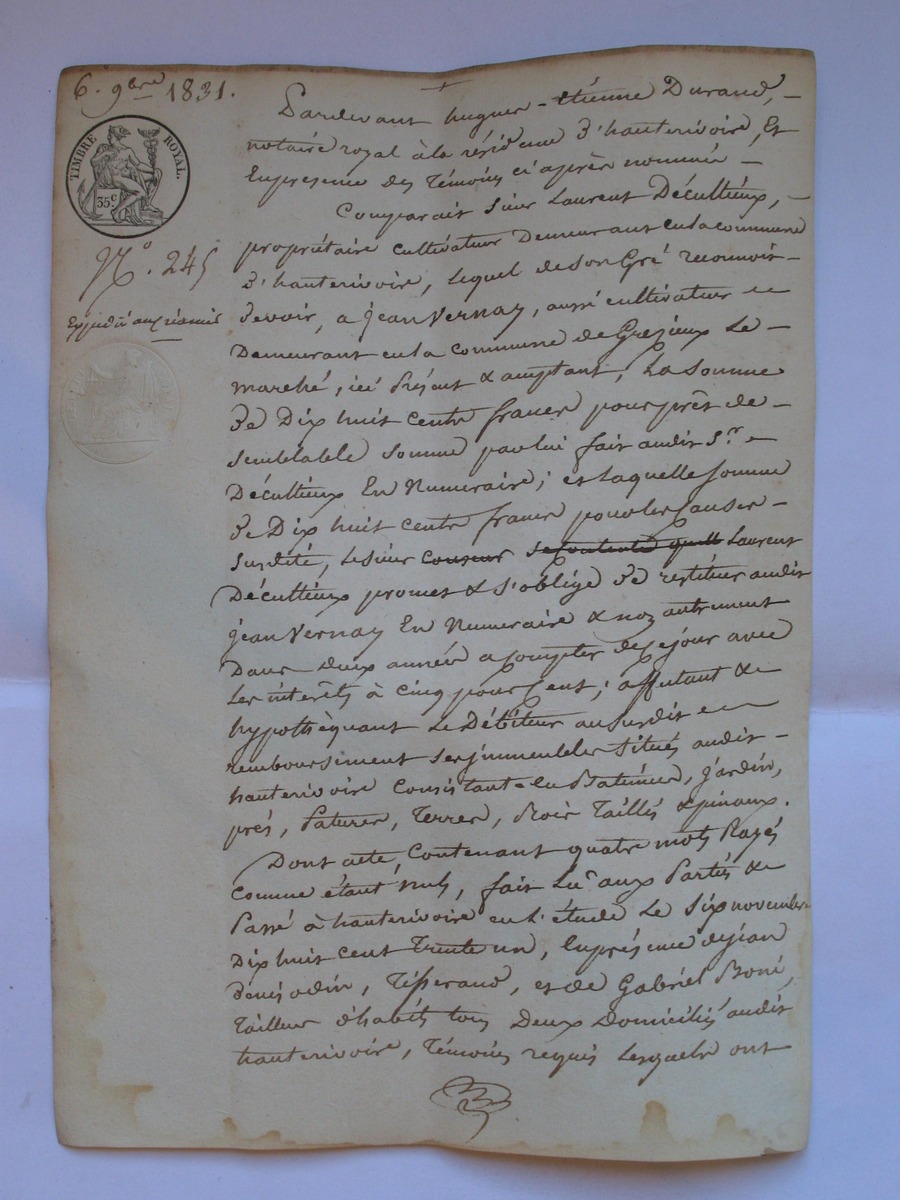 6. 9bre 1831.
TIMBRE ROYAL.
35c
N.° 245
Expédié aux réquis
Pardevant hugues-étienne Durand,
notaire royal à la résidence d'hauterivoire, Et
En présence des Témoins ci après nommés
Comparait Sieur Laurent Décultieux,
propriétaire cultivateur Demeurant en la commune
d'hauterivoire, lequel de son Gré reconnoit
devoir, a jean Vernay, aussi cultivateur
Demeurant en la commune de Grezieux Le
marché, ici présent & acceptant, La Somme
de Dix huit cents francs pour prêt de
semblable somme par lui fait audit Sr.
Décultieux En Numeraire; et laquelle somme
de Dix huit cents francs pour les causes
susdites, le sieur Laurent
Décultieux promet & s'oblige de restituer audit
jean Vernay En Numeraire & non autrement
Dans deux années a compter de ce jour avec
Les intérêts à cinq pour cent; affectant &
hypothèquant le Débiteur au susdit
remboursement ses immeubles situés audit
hauterivoire Consistant en Batiments, jardin,
prés, Patures, Terres, Bois Taillis & pinaux.
Dont acte, Contenant quatre mots Rayés
comme étant Nuls, fait Lu aux Parties &
Passé à hauterivoire en l'étude Le Six novembre
Dix huit cent Trente un, En présence de jean
denis odin, Tisserand, et de Gabriel Boné,
Tailleur d'habits tous Deux Domiciliés audit
hauterivoire, Témoins requis Lesquels ont